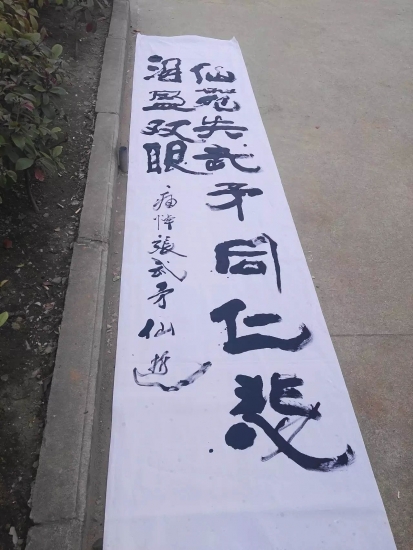 仙苑失武矛同仁悲
泪盈双眼
痛悼張武矛仙逝